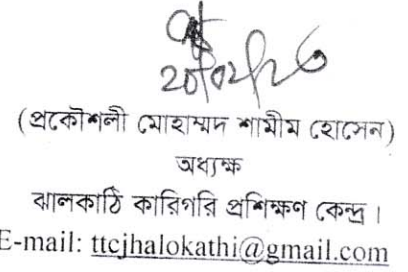 20/02/26
(প্রকৌশলী মোহাম্মদ শামীম হোসেন)
অধ্যক্ষ
ঝালকাঠি কারিগরি প্রশিক্ষণ কেন্দ্র।
E-mail: ttcjhalokathi@gmail.com